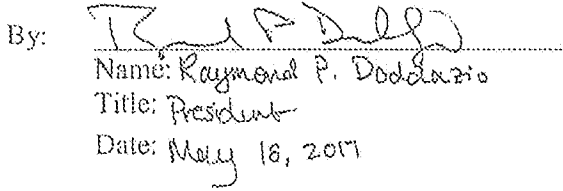 By:
Name: Raymond P. Doddazio
Title: President
Date: May 18, 2017